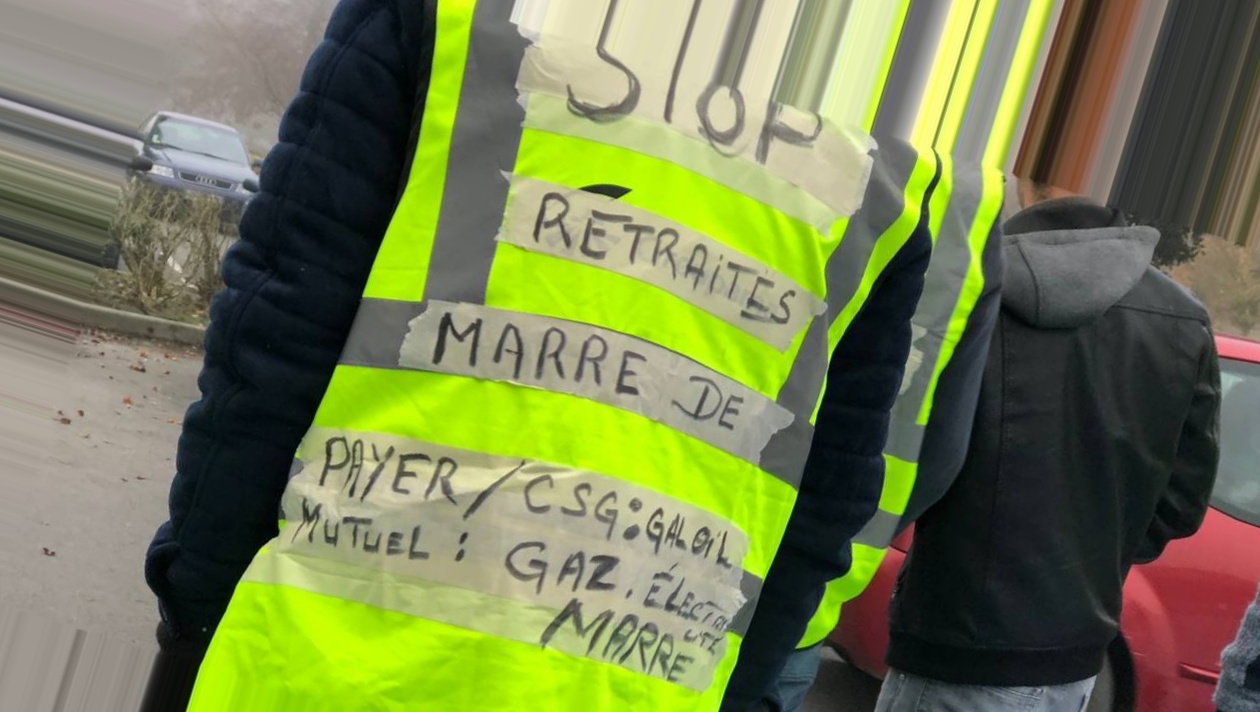 STOP
RETRAITÉS
MARRE DE
PAYER / CSG: GALOIL
MUTUEL : GAZ. ÉLECTRI
CITÉ
MARRE